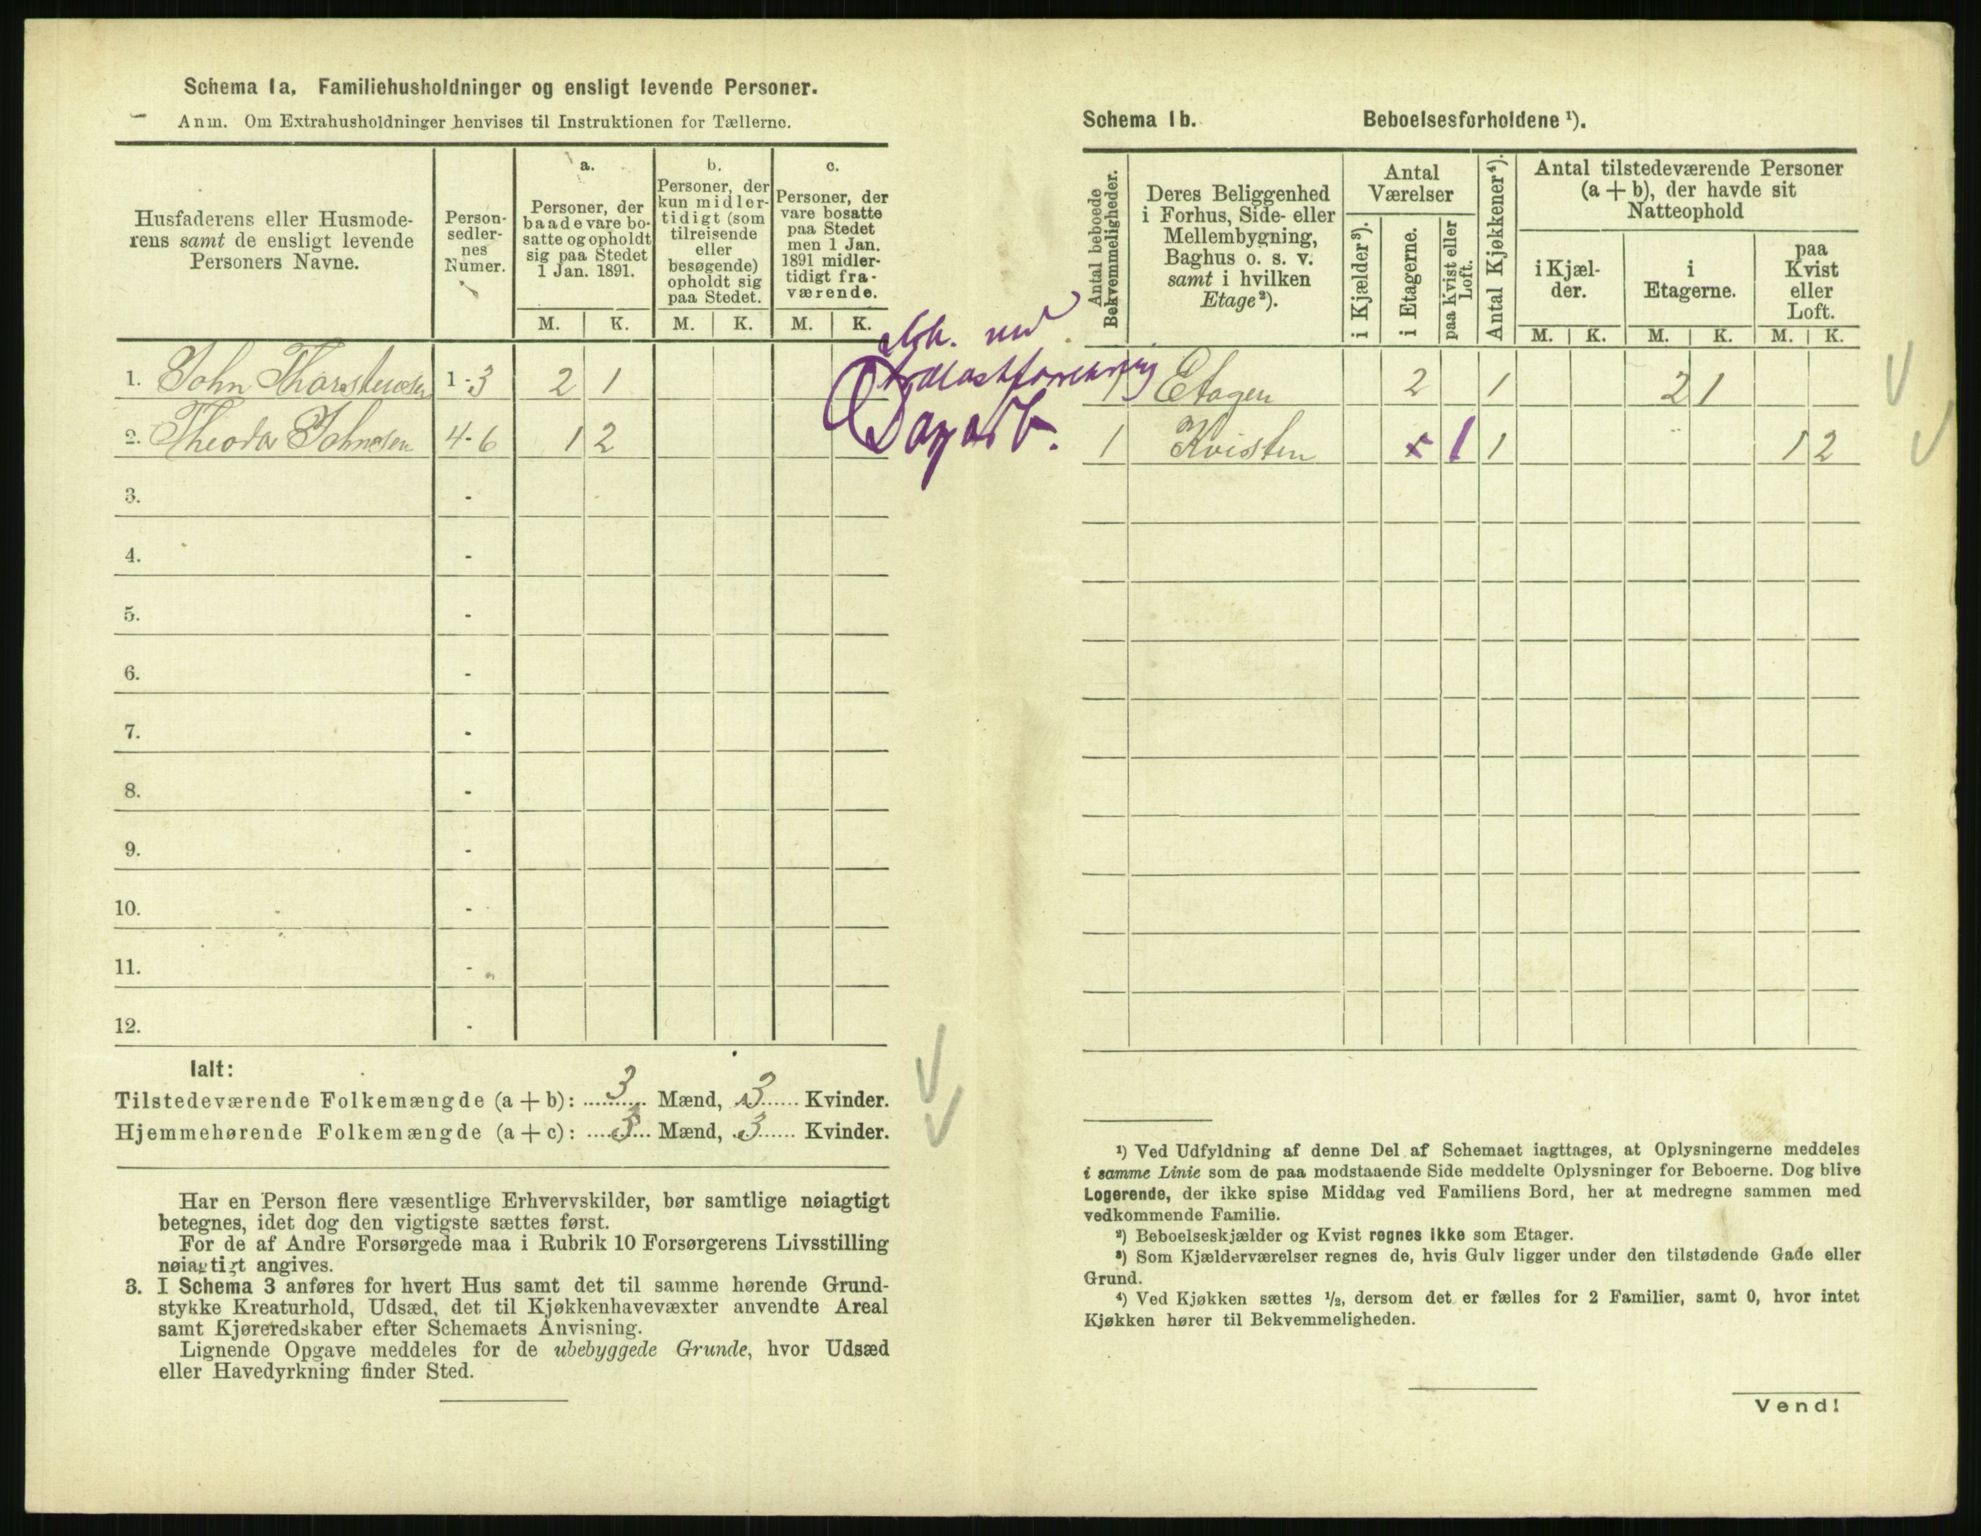 Schema 1a. Familiehusholdninger og ensligt levende Personer.
Anm. Om Extrahusholdninger henvises til Instruktionen for Tællerne.
Husfaderens eller Husmode-
rens samt de ensligt levende
Personers Navne.
Person-
sedler-
nes
Numer.
a.
Personer, der
baade vare bo-
satte og opholdt
sig paa Stedet
1 Jan. 1891.
b.
Personer, der
kun midler-
tidigt (som
tilreisende
eller
besøgende)
opholdt sig
paa Stedet.
c.
Personer, der
vare bosatte
paa Stedet
men 1 Jan.
1891 midler-
tidigt fra-
værende.
M. K. M. K. M. K.
1. John Thorstensen 1-3 2 1
2. Theodor Johnsen 4-6 1 2
3. -
4. -
5. -
6. -
7. -
8. -
9. -
10. -
11. -
12. -
Ialt:
Tilstedeværende Folkemængde (a + b): 3 Mænd, 3 Kvinder.
Hjemmehørende Folkemængde (a + c): 3 Mænd, 3 Kvinder.
Har en Person flere væsentlige Erhvervskilder, bør samtlige nøiagtigt
betegnes, idet dog den vigtigste sættes først.
For de af Andre Forsørgede maa i Rubrik 10 Forsørgerens Livsstilling
nøiagtigt angives.
3. I Schema 3 anføres for hvert Hus samt det til samme hørende Grund-
stykke Kreaturhold, Udsæd, det til Kjøkkenhavevæxter anvendte Areal
samt Kjøreredskaber efter Schemaets Anvisning.
Lignende Opgave meddeles for de ubebyggede Grunde, hvor Udsæd
eller Havedyrkning finder Sted.
Arb. ved
Dagarb.
Schema 1b. Beboelsesforholdene ¹).
Antal beboede
Bekvemmeligheder.
Deres Beliggenhed
i Forhus, Side- eller
Mellembygning,
Baghus o. s. v.
samt i hvilken
Etage²).
Antal
Værelser
i Kjælder³).
i Etagerne.
paa Kvist eller
Loft.
Antal Kjøkkener⁴).
Antal tilstedeværende Personer
(a + b), der havde sit
Natteophold
i Kjæl-
der.
i
Etagerne.
paa
Kvist
eller
Loft.
M. K. M. K. M. K.
1 Etagen 2 1 2 1
1 Kvisten x 1 1 1 2
¹) Ved Udfyldning af denne Del af Schemaet iagttages, at Oplysningerne meddeles
i samme Linie som de paa modstaaende Side meddelte Oplysninger for Beboerne. Dog blive
Logerende, der ikke spise Middag ved Familiens Bord, her at medregne sammen med
vedkommende Familie.
²) Beboelseskjælder og Kvist regnes ikke som Etager.
³) Som Kjælderværelser regnes de, hvis Gulv ligger under den tilstødende Gade eller
Grund.
⁴) Ved Kjøkken sættes ½, dersom det er fælles for 2 Familier, samt 0, hvor intet
Kjøkken hører til Bekvemmeligheden.
Vend!